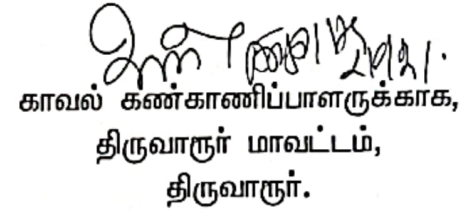 காவல் கண்காணிப்பாளருக்காக,
திருவாரூர் மாவட்டம்,
திருவாரூர்.